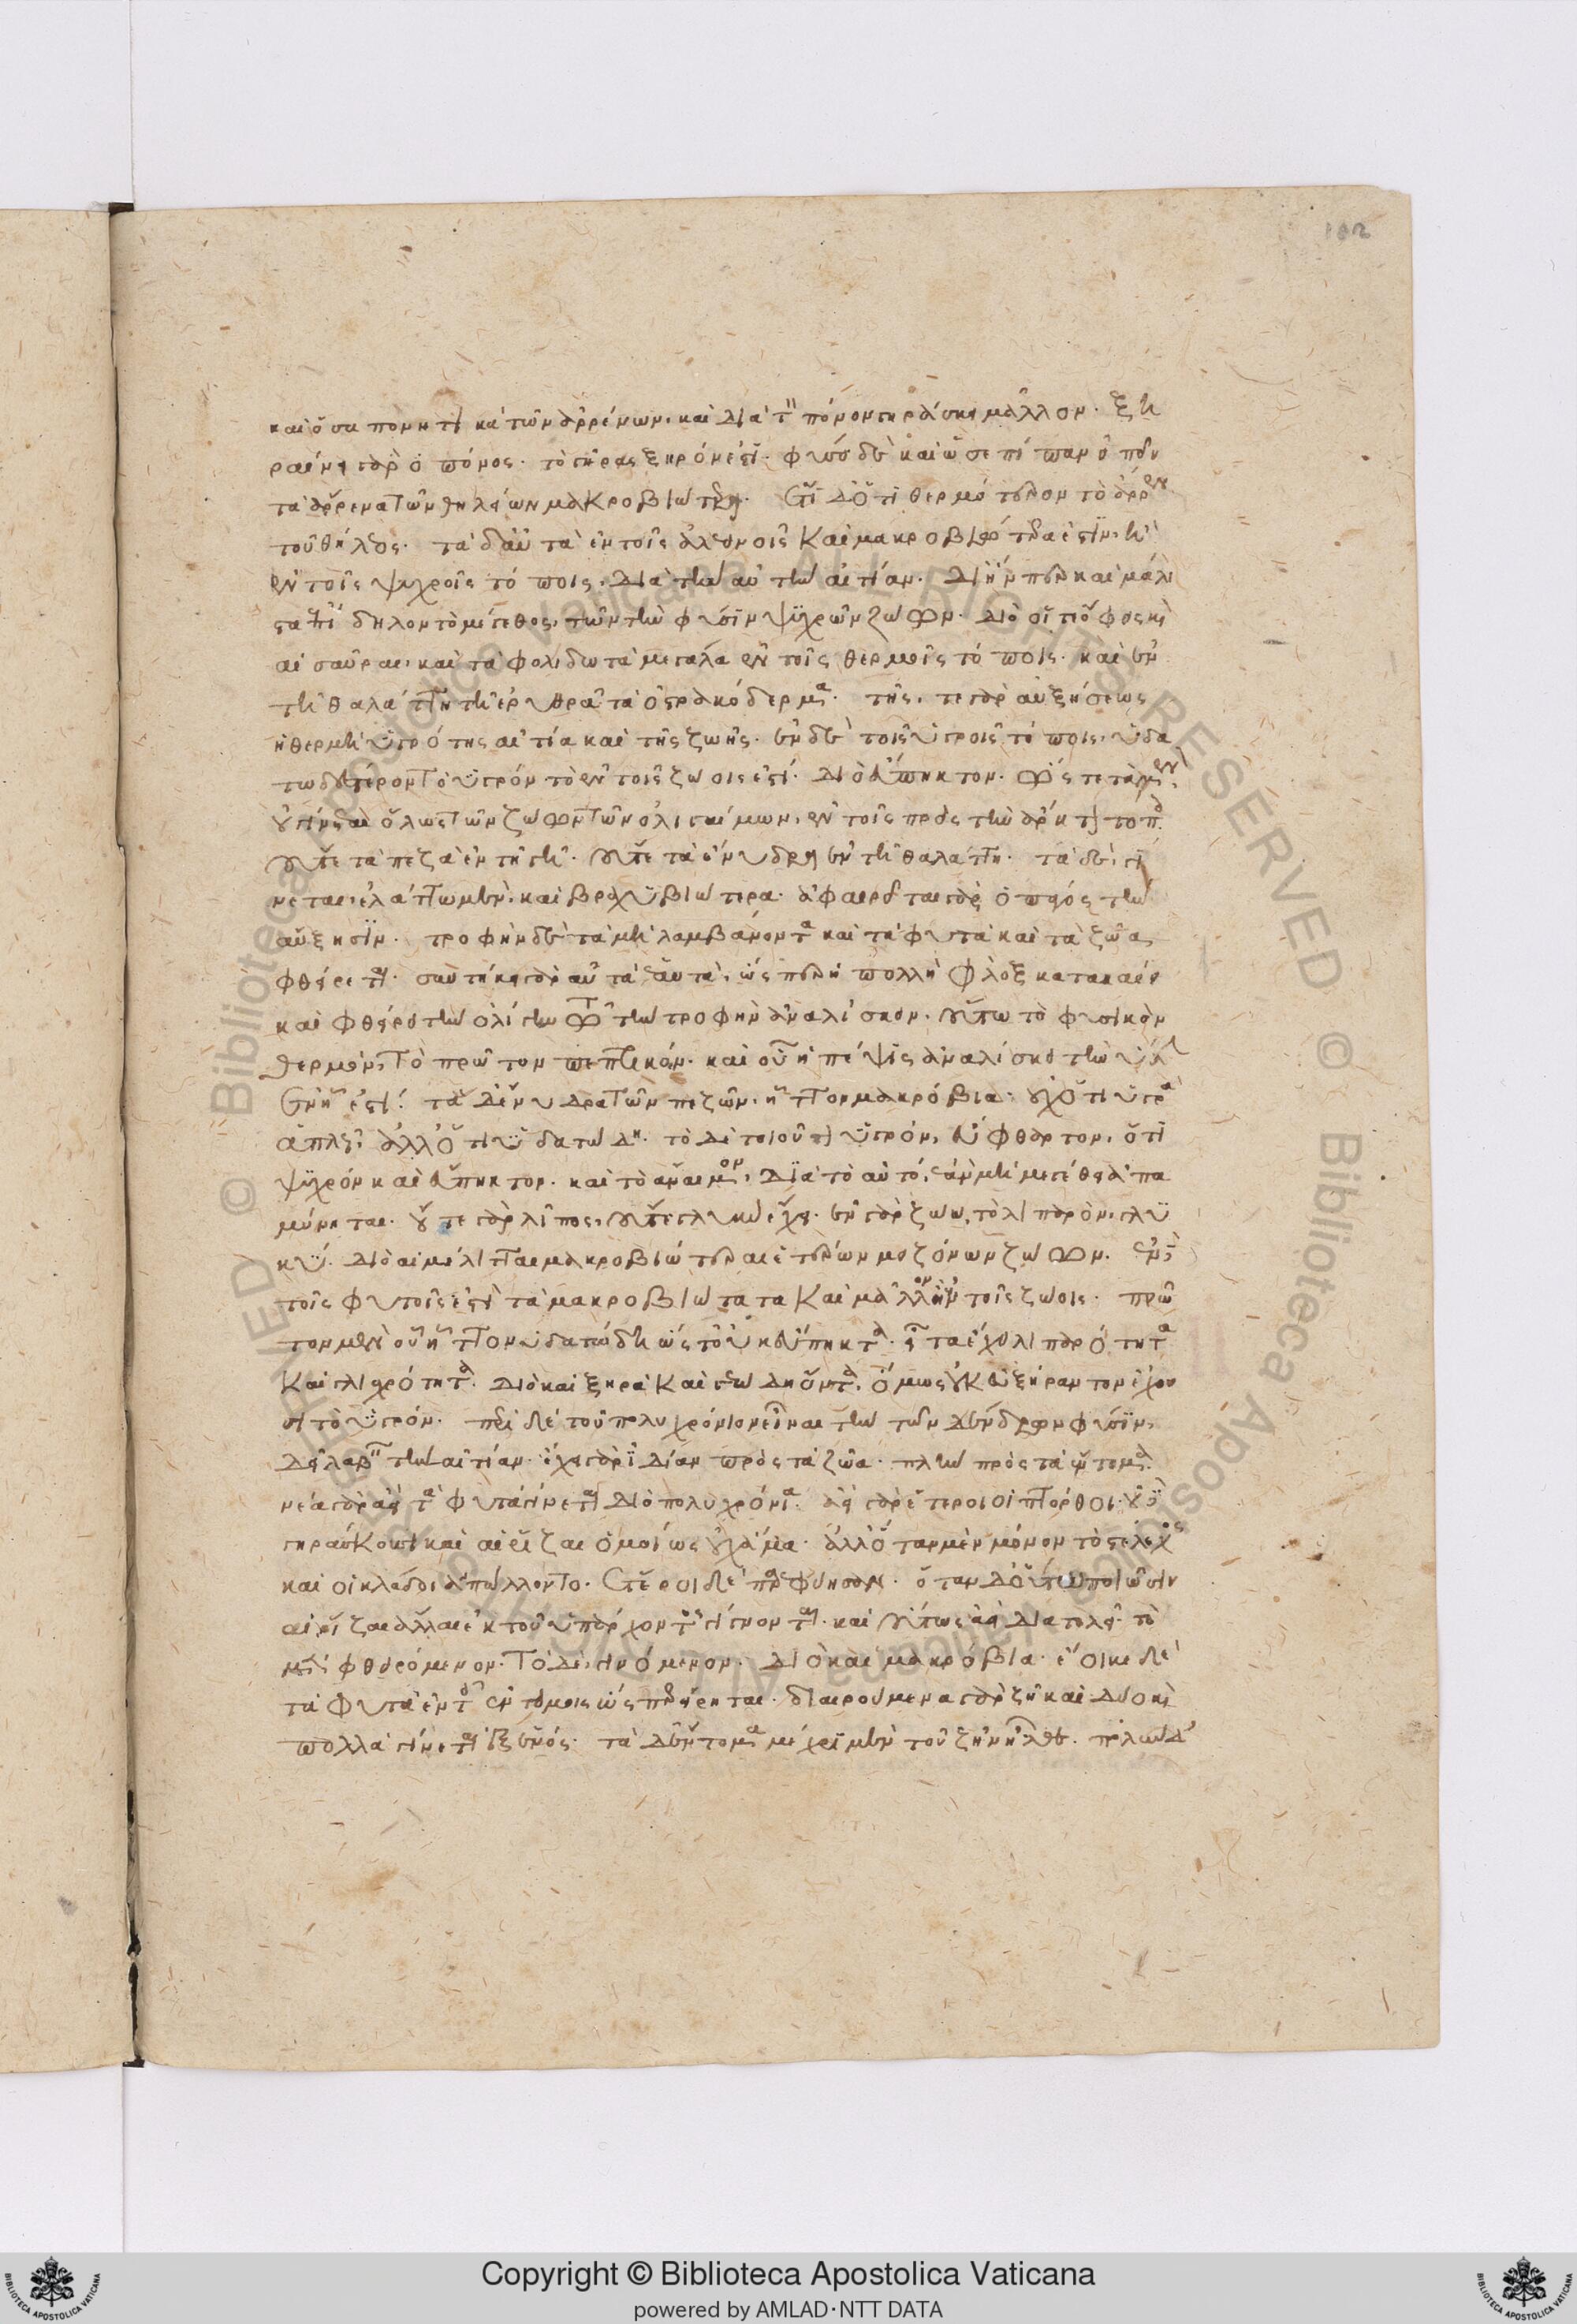 καὶ ὅσα πονητικὰ τῶν ἀρρένων. καὶ διὰ τὸν πόνον γηράσκει μᾶλλον. ξη
ραίνει γὰρ ὁ πόνος. τὸ γῆρας ξηρόν ἐστι. φύσει δὲ καὶ ὡς ἐπίπαν εἰπεῖν
τὰ ἄρρενα τῶν θηλειῶν μακροβιώτερα. αἴτιον δ' ὅτι θερμότερον τὸ ἄρρεν
τοῦ θήλεος. τὰ δ' αὐτὰ ἐν τοῖς ἀλεεινοῖς καὶ μακροβιώτερα ἐστὶν ἢ
ἐν τοῖς ψυχροῖς τόποις. διὰ τὴν αὐτὴν αἰτίαν. δι' ἥνπερ καὶ μάλι
στα ἐπίδηλον τὸ μέγεθος, τῶν τὴν φύσιν ψυχρῶν ζώων. διὸ οἵ τε ὄφεις καὶ
αἱ σαῦραι, καὶ τὰ φολιδωτὰ μεγάλα ἐν τοῖς θερμοῖς τόποις. καὶ ἐν
τῇ θαλάττῃ τῇ ἐρυθρᾶ τὰ ὀστρακόδερμα. τῆς, τε γὰρ αὐξήσεως
ἡ θερμὴ ὑγρότης αἰτία καὶ τῆς ζωῆς. ἐν δὲ τοῖς ψυχροῖς τόποις, ὑδα
τωδέστερον τὸ ὑγρὸν τὸ ἐν τοῖς ζώοις ἐστί. διὸ εὔπηκτον. ὥστε τὰ μὲν,
οὐ γίνεται ὅλως τῶν ζώων τῶν ὀλιγαίμων, ἐν τοῖς πρὸς τὴν ἄρκτον τόποις.
οὔτε τὰ πεζὰ ἐν τῇ γῇ. οὔτε τὰ ἔνυδρα ἐν τῇ θαλάττῃ. τὰ δὲ, γί
νεται, ἐλάττω μὲν, καὶ βραχυβιώτερα. ἀφαιρεῖται γὰρ ὁ πάγος τὴν
αὔξησιν. τροφὴν δὲ τὰ μὴ λαμβάνοντα καὶ τὰ φυτὰ καὶ τὰ ζῶα
φθείρεται. συντήκει γὰρ αὐτὰ ἑαυτὰ, ὥσπερ ἡ πολλὴ φλὸξ κατακαίει
καὶ φθείρει τὴν ὀλίγην τῶ τὴν τροφὴν ἀναλίσκειν. οὕτω τὸ φυσικὸν
θερμὸν, τὸ πρῶτον πεπτικὸν. καὶ οὖν ἡ πέψις ἀναλίσκει τὴν ὕλην
ἐν ᾗ ἐστί. τὰ δ' ἔνυδρα τῶν πεζῶν, ἧττον μακρόβια. οὐχ ὅτι ὑγρὰ
ἁπλῶς, ἀλλ' ὅτι ὑδατώδη. τὸ δὲ τοιοῦτον ὑγρόν, εὔφθαρτον. ὅτι
ψυχρὸν καὶ εὔπηκτον. καὶ τὸ ἄναιμον, διὰ τὸ αὐτό, ἐὰν μὴ μεγέθει ἀπα
μύνηται. οὔτε γὰρ λίπος, οὔτε γλυκὺ ἔχει. ἐν γὰρ ζώω, τὸ λιπαρὸν, γλυ
κύ. διὸ αἱ μέλιτται μακροβιώτεραι ἑτέρων μειζόνων ζώων. ἐν δὲ
τοῖς φυτοῖς ἐστὶ τὰ μακροβιώτατα καὶ μᾶλλον ἢ ἐν τοῖς ζώοις. πρῶ
τον μὲν οὖν ἧττον ὑδατώδη ὥστ' οὐκ εὔπηκτα. εἶτα ἔχει λιπαρότητα
καὶ γλισχρότητα. διὸ καὶ ξηρὰ καὶ γεώδη ὄντα, ὅμως οὐκ εὐξήραντον ἔχου
σι τὸ ὑγρόν. περὶ δὲ τοῦ πολυχρόνιον εἶναι τὴν τῶν δένδρων φύσιν,
δεῖ λαβεῖν τὴν αἰτίαν. ἔχει γὰρ ἰδίαν πρὸς τὰ ζῶα. πλὴν πρὸς τὰ ἔντομα.
νέα γὰρ ἀεὶ τὰ φυτὰ γίνεται διὸ πολυχρόνια. ἀεὶ γὰρ ἕτεροι οἱ πτόρθοι. οἱ δὲ
γηράσκουσι καὶ αἱ ῥίζαι ὁμοίως οὐχ ἅμα. ἀλλ' ὅταν μὲν μόνον τὸ στέλεχος
καὶ οἱ κλάδοι ἀπώλλοντο. ἕτεροι δὲ παρεφύησαν. ὅταν δ' οὕτω ποιῶσιν
αἱ ῥίζαι ἄλλαι ἐκ τοῦ ὑπάρχοντος γίγνονται. καὶ οὕτως ἀεὶ διατελεῖ τὸ
μὲν φθειρόμενον. τὸ δὲ, γινόμενον. διὸ καὶ μακρόβια. ἔοικε δὲ
τὰ φυτὰ ἐν τοῖς ἐντόμοις ὥσπερ εἴρηται. διαιρούμενα γὰρ ζῆ καὶ δύο καὶ
πολλὰ γίνεται ἐξ ἑνός. τὰ δ' ἔντομα μέχρι μὲν τοῦ ζῆν ἦλθε. πολὺν δ'